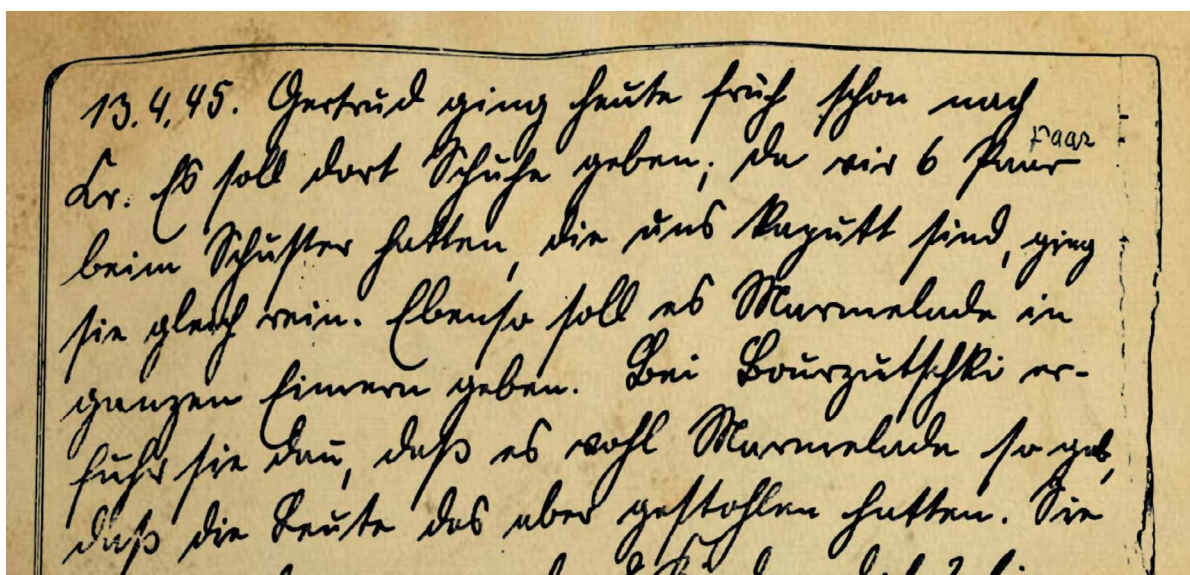 13.4.45. Gertrud ging heute früh schon nach
Kr. Es soll dort Schuhe geben; da wir 6 Paar
Paar
beim Schuster hatten, die uns kaputt sind, ging
sie gleich rein. Ebenso soll es Marmelade in
ganzen Eimern geben. Bei Bourzutschki er-
fuhr sie dan̅, daß es wohl Marmelade so gab,
daß die Leute das aber gestohlen hatten. Sie